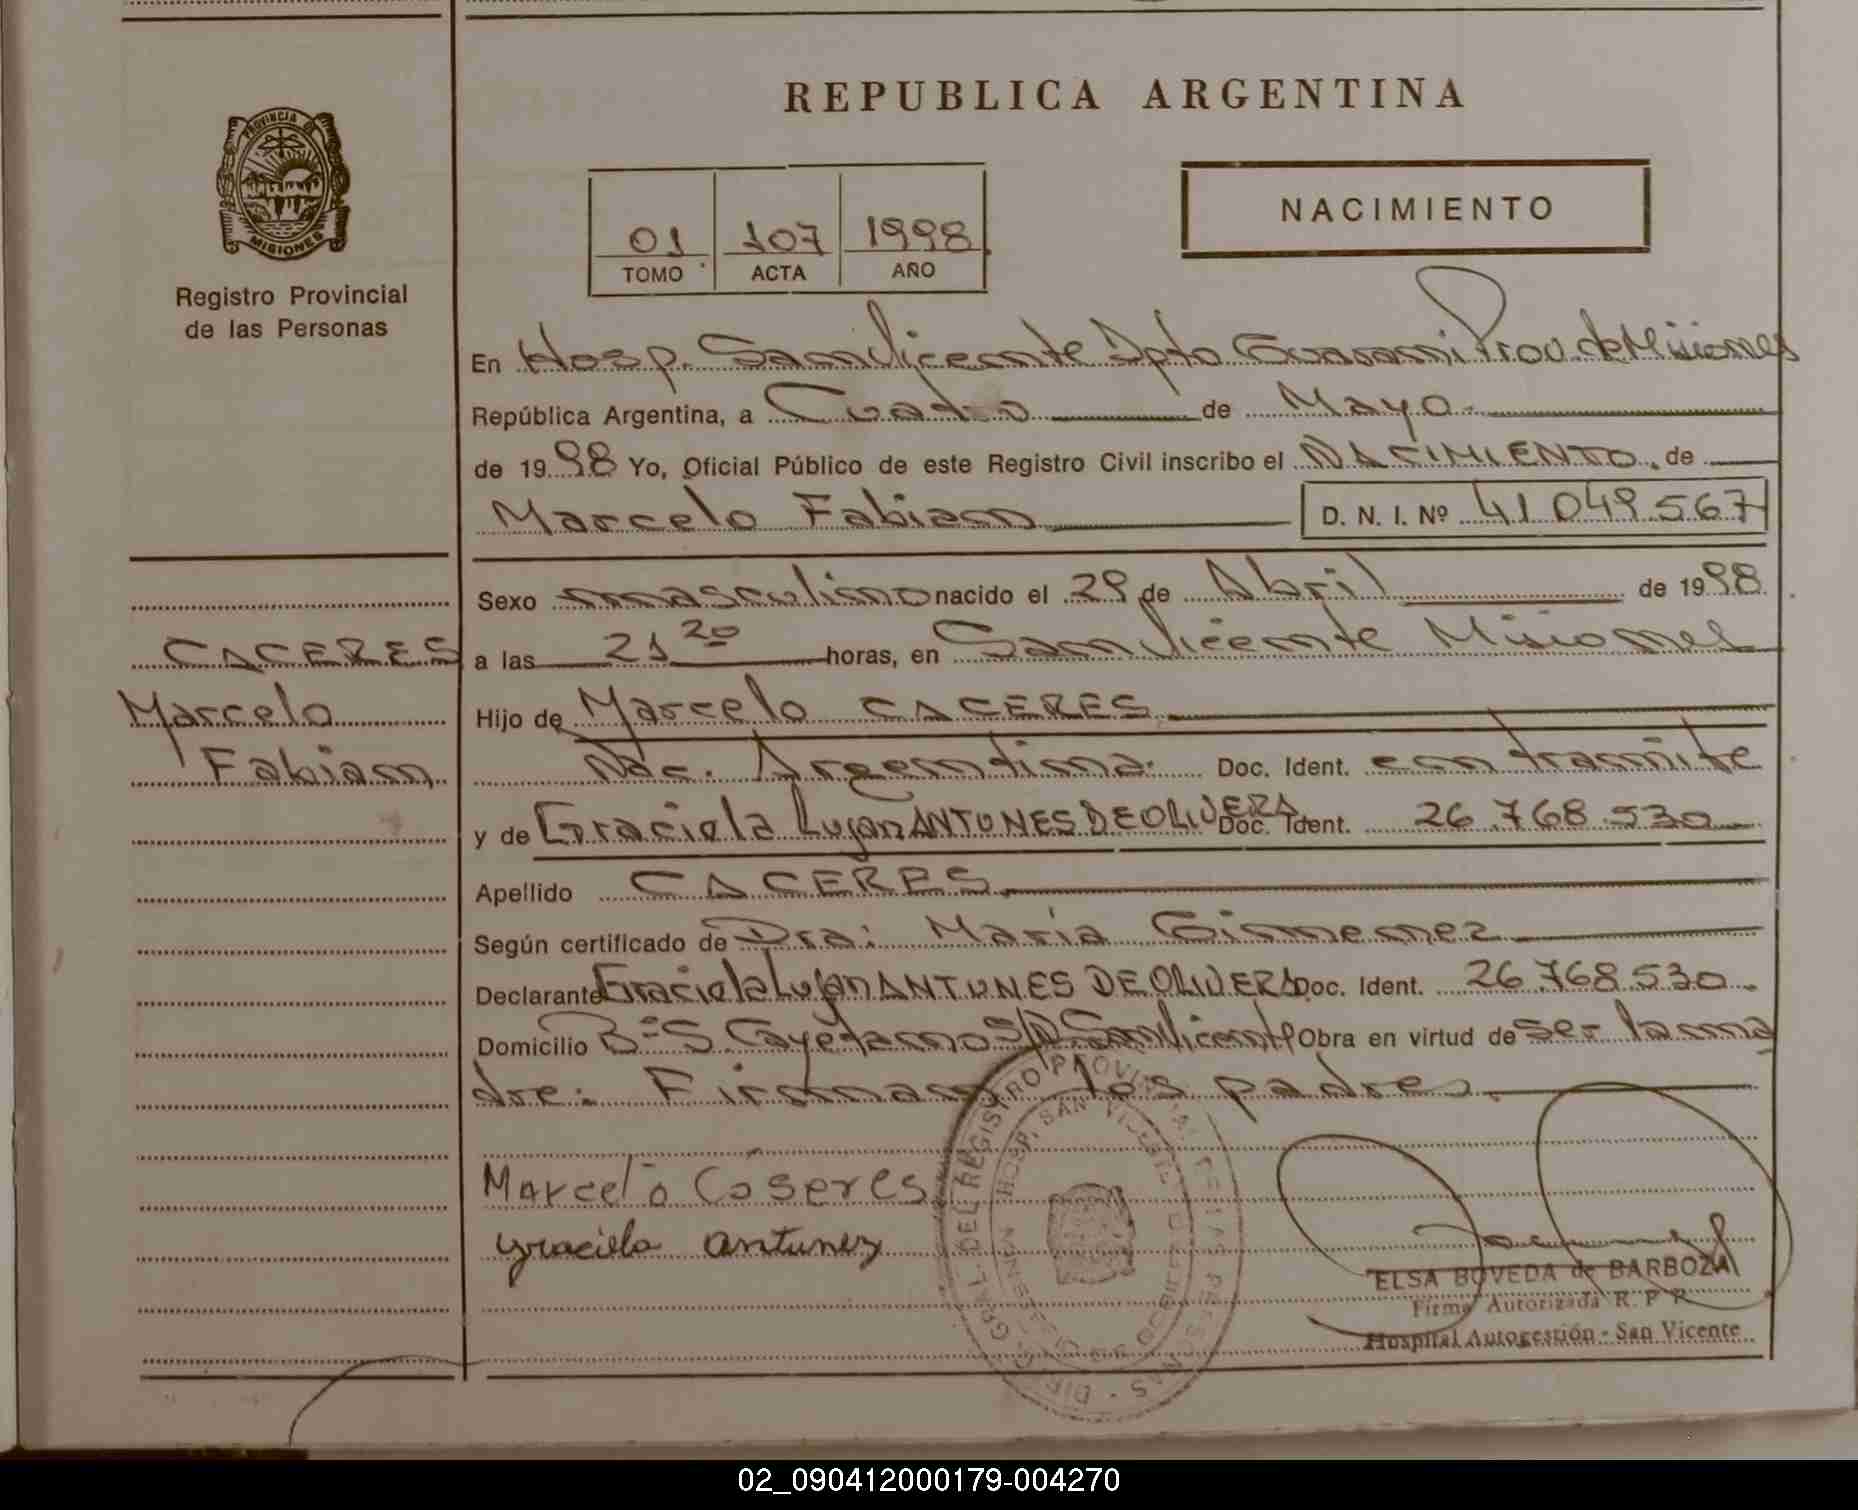 REPUBLICA ARGENTINA
PROVINCIA DE
MISIONES
Registro Provincial
de las Personas
01 107 1998
TOMO ACTA AÑO
NACIMIENTO
En Hosp. San Vicente Dpto Guarani Prov. de Misiones
República Argentina, a Cuatro de Mayo
de 1998 Yo, Oficial Público de este Registro Civil inscribo el NACIMIENTO. de
Marcelo Fabian D. N. I. Nº 41 049.567
Sexo masculino nacido el 29 de Abril de 1998
CACERES
Marcelo
Fabian
a las 21 20 horas, en San Vicente Misiones
Hijo de Marcelo CACERES
Nac. Argentina. Doc. Ident. en tramite
y de Graciela Lujan ANTUNES DE OLIVERA Doc. Ident. 26.768.530
Apellido CACERES
Según certificado de Dra: María Gimenez
Declarante Graciela Lujan ANTUNES DE OLIVERA Doc. Ident. 26.768.530.
Domicilio Bº S. Cayetano S/N San Vicente Obra en virtud de ser la ma
dre: Firman los padres.
Marcelo Caseres
Graciela antunez
DIREC. GRAL. DEL REGISTRO PROVINCIAL DE LAS PERSONAS
HOSP. SAN VICENTE
MISIONES
ELSA BOVEDA de BARBOZA
Firma Autorizada R. P. P.
Hospital Autogestión - San Vicente
02_090412000179-004270